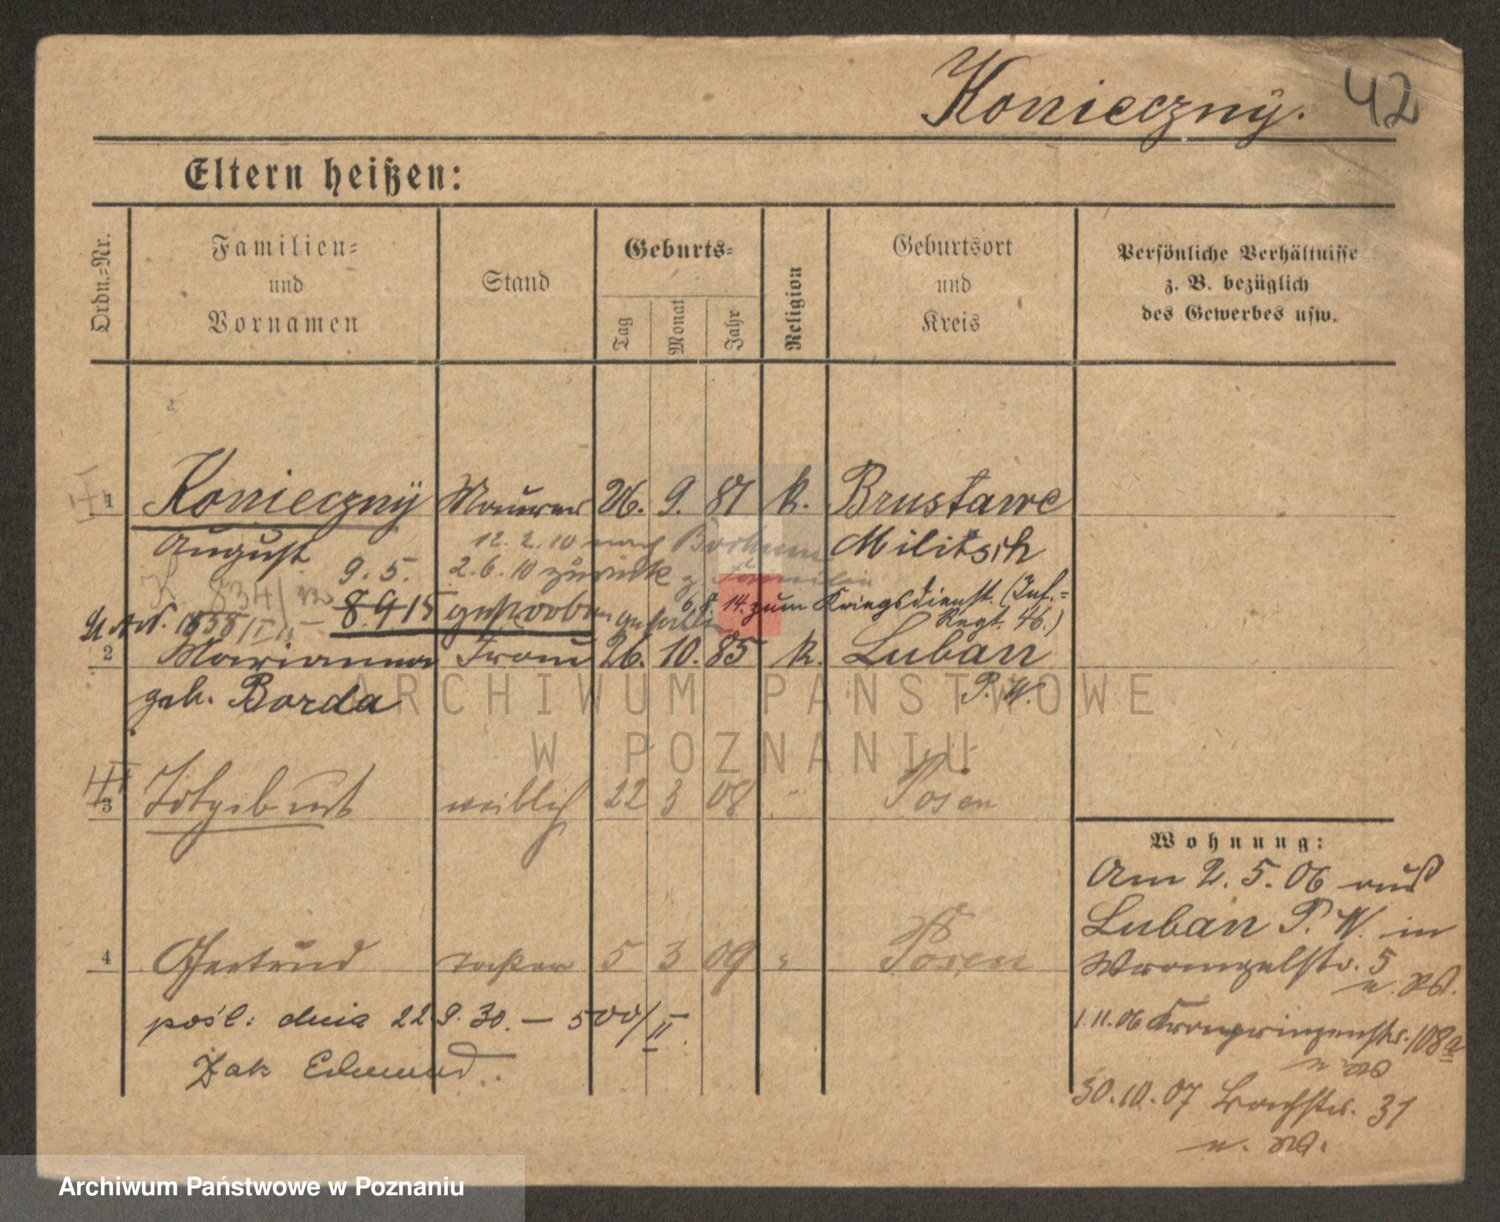 Konieczny. 42
Eltern heißen:
Ordn.=Nr.
Familien=
und
Vornamen
Stand
Geburts=
Tag
Monat
Jahr
Religion
Geburtsort
und
Kreis
Persönliche Verhältnisse
z. B. bezüglich
des Gewerbes usw.
1 Konieczny Maurer 26. 9. 81 k. Brustawe
August Militsch
12. 2. 10 nach Borkum
9. 5. 2. 6. 10 zurück z. Familie
834/
8915 gestorben gefallen
6. 8. 14. zum Kriegsdienst. (Inf.=
Regt. 46.)
2 Marianna Frau 26. 10. 85 k. Luban
geb. Borda P. W.
3 Totgeburt weiblich 22 3 08 " Posen
4 Gertrud Tochter 5 3 09 " Posen
pośl: dnia 22 9. 30. — 500/II
Żak Edmund.
Wohnung:
Am 2. 5. 06 aus
Luban P. W. in
Wrangelstr. 5
1. 11. 06 Kronprinzenstr. 108a
30. 10. 07 Bachstr. 31
ARCHIWUM PAŃSTWOWE
W POZNANIU
Archiwum Państwowe w Poznaniu